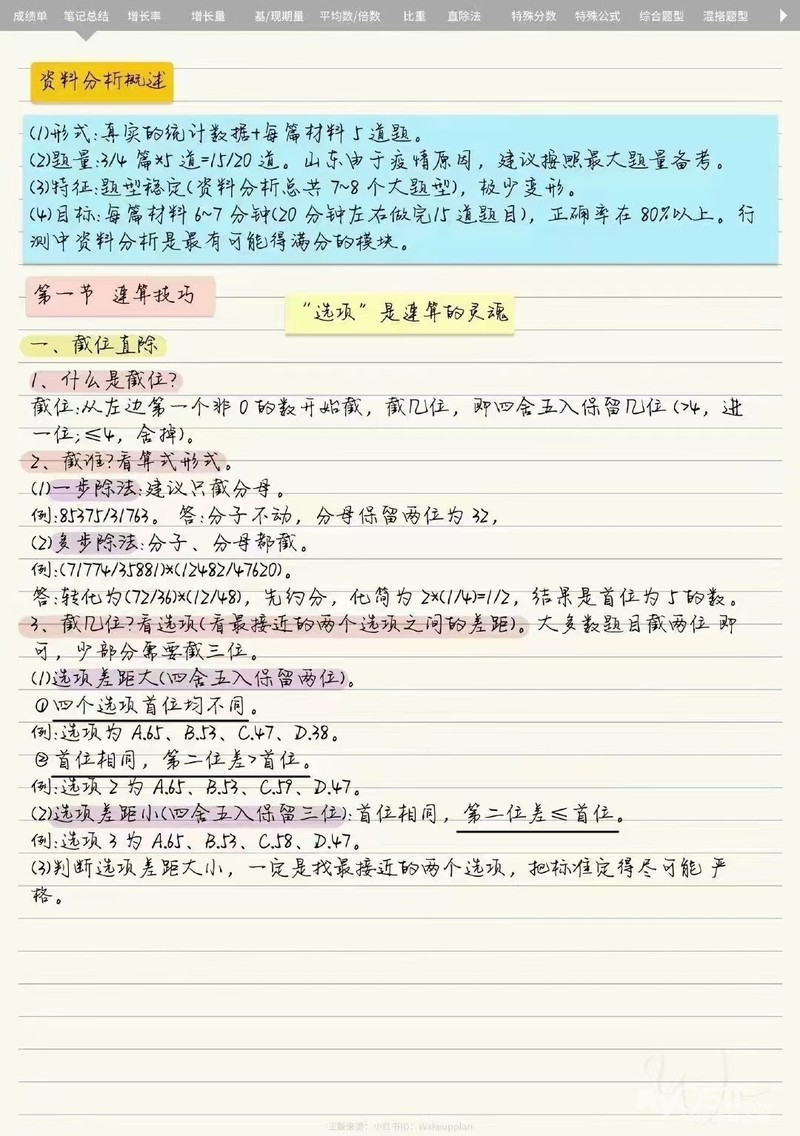 成绩单 笔记总结 增长率 增长量 基/现期量 平均数/倍数 比重 直除法 特殊分数 特殊公式 综合题型 混搭题型
资料分析概述
(1)形式:真实的统计数据+每篇材料5道题。
(2)题量:3/4 篇*5 道=15/20 道。山东由于疫情原因，建议按照最大题量备考。
(3)特征:题型稳定(资料分析总共 7~8 个大题型)，极少变形。
(4)目标:每篇材料6~7 分钟(20 分钟左右做完15 道题目)，正确率在 80%以上。行
测中资料分析是最有可能得满分的模块。
第一节 速算技巧
“选项”是速算的灵魂
一、截位直除
1、什么是截位?
截位:从左边第一个非 0 的数开始截，截几位，即四舍五入保留几位(>4，进
一位;≤4，舍掉)。
2、截谁?看算式形式。
(1)一步除法:建议只截分母。
例:85375/31763。 答:分子不动，分母保留两位为 32，
(2)多步除法:分子、分母都截。
例:(71774/35881)*(12482/47620)。
答:转化为(72/36)*(12/48)，先约分，化简为 2*(1/4)=1/2，结果是首位为 5 的数。
3、截几位?看选项(看最接近的两个选项之间的差距)。大多数题目截两位 即
可，少部分需要截三位。
(1)选项差距大(四舍五入保留两位)。
①四个选项首位均不同。
例:选项为 A.65、B.53、C.47、D.38。
②首位相同，第二位差>首位。
例:选项 2 为 A.65、B.53、C.59、D.47。
(2)选项差距小(四舍五入保留三位):首位相同，第二位差≤首位。
例:选项 3 为 A.65、B.53、C.58、D.47。
(3)判断选项差距大小，一定是找最接近的两个选项，把标准定得尽可能 严
格。
主版来源：小红书ID：Wakeupplan